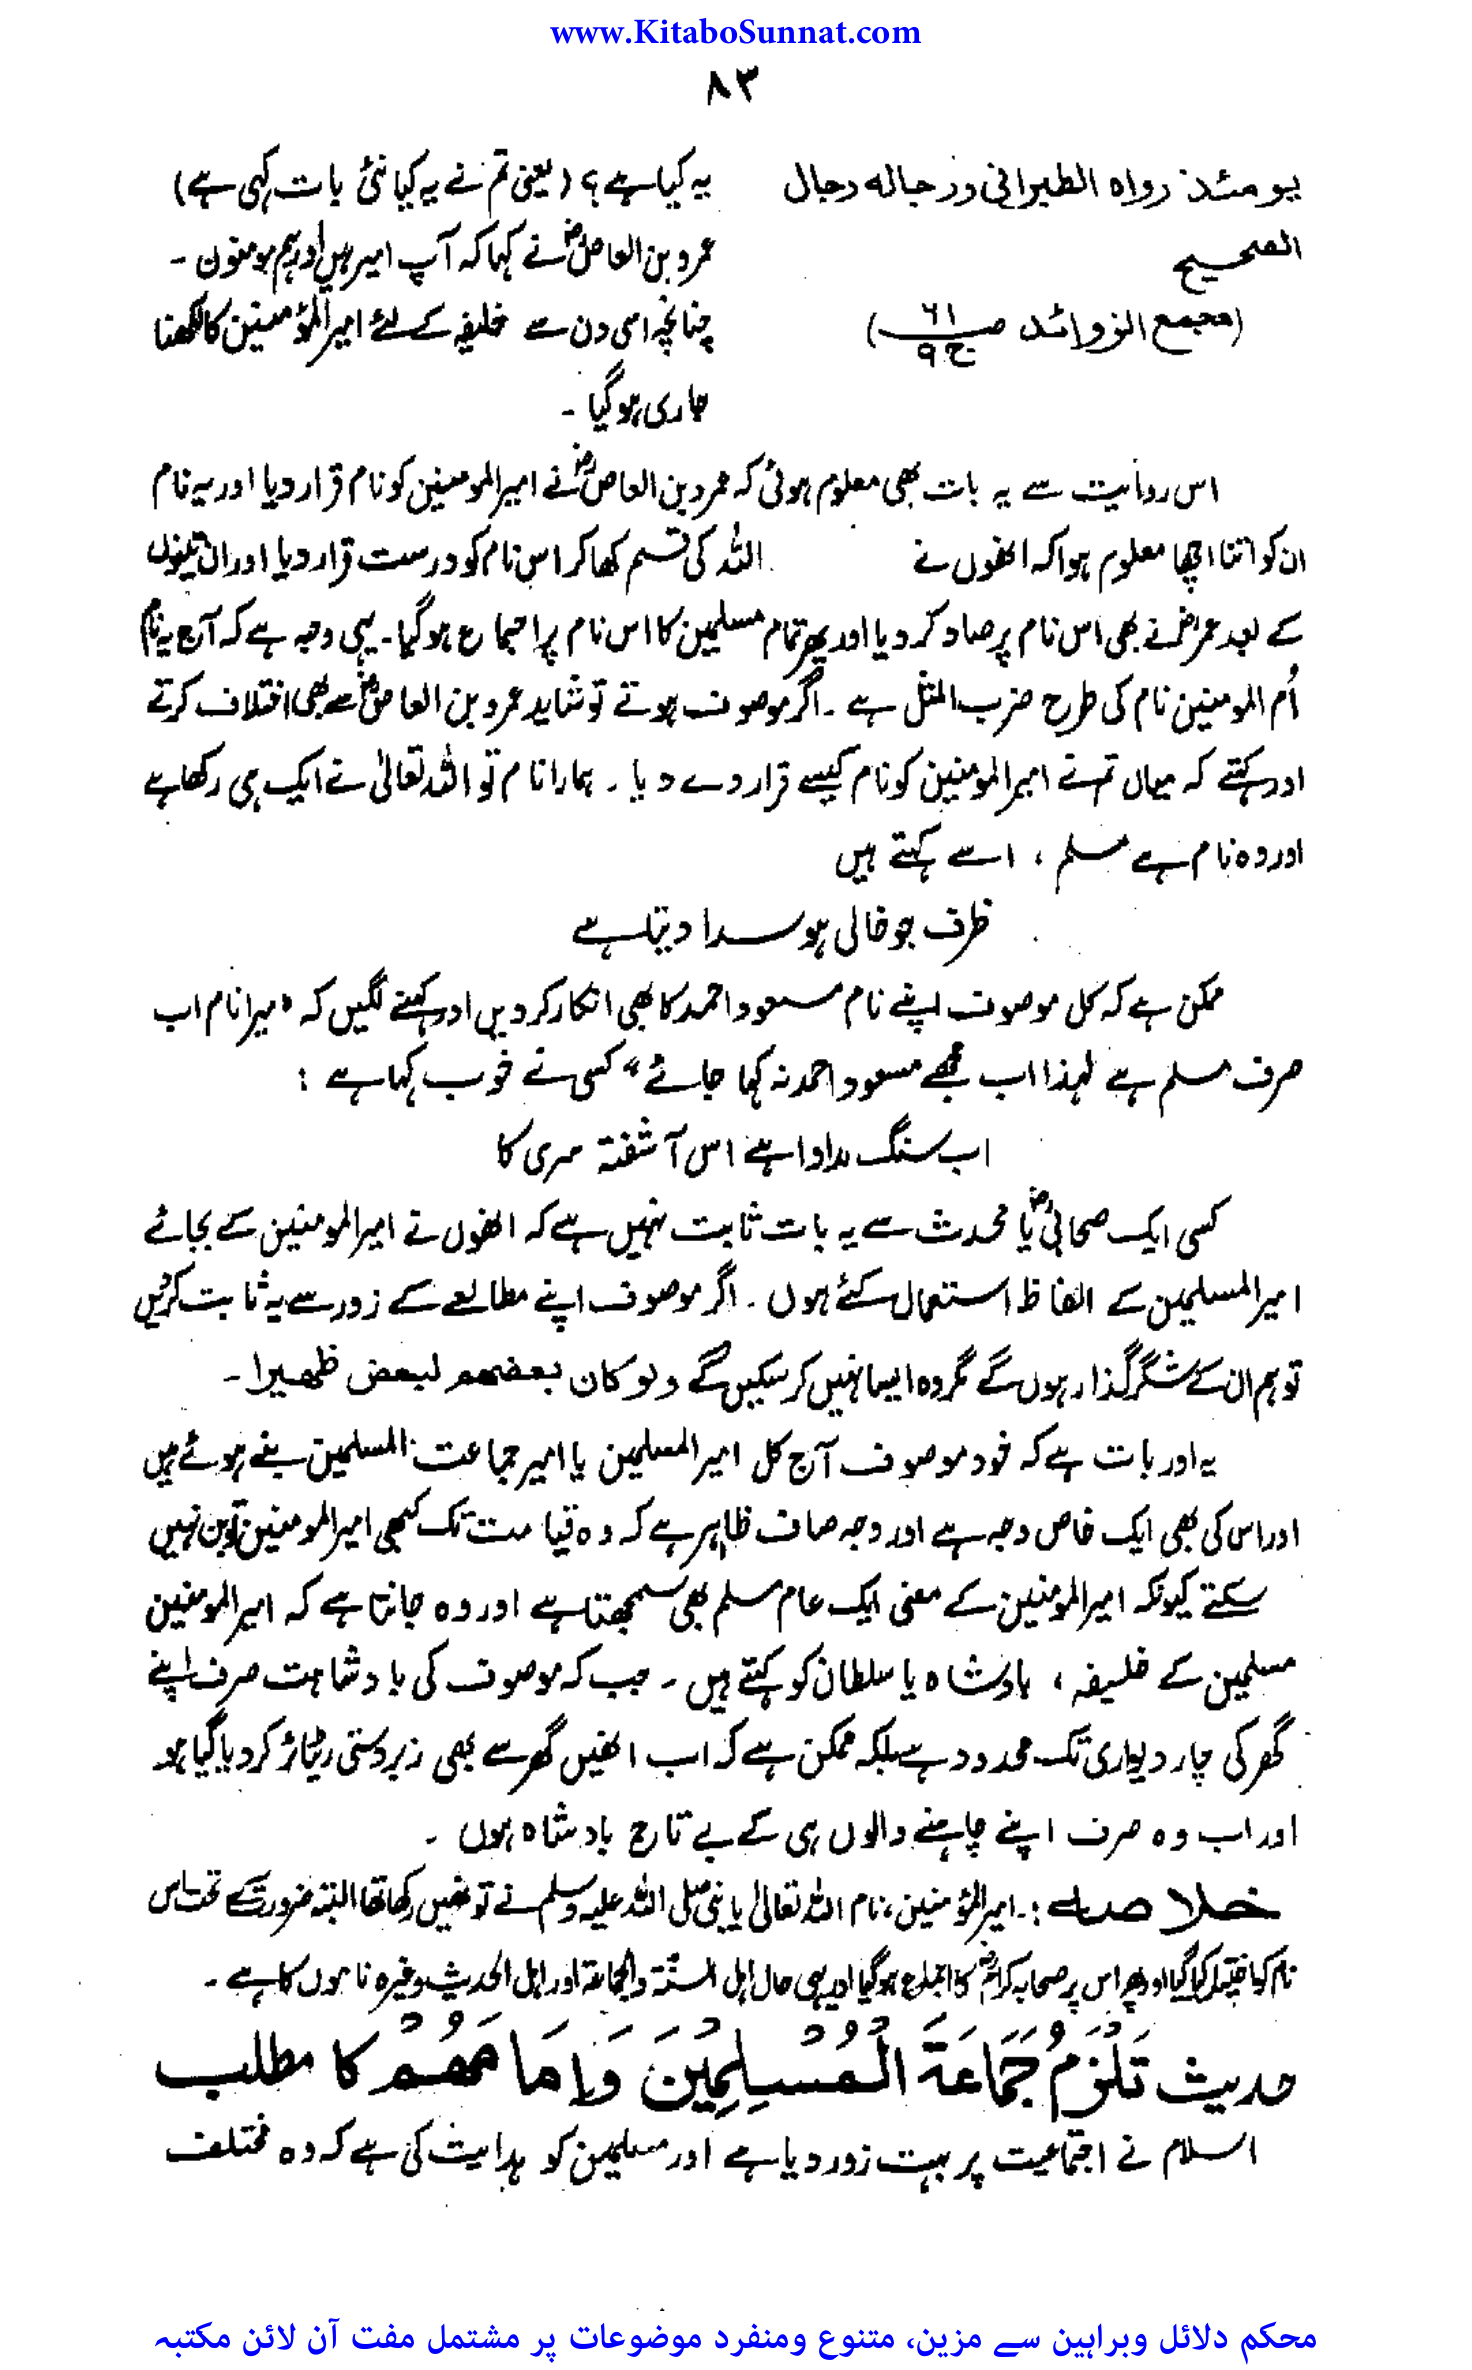 www.KitaboSunnat.com
۸۳
یومئذ رواہ الطبرانی ورجالہ رجال
الصحیح
(مجمع الزوائد ص ۶۱ ج ۹)
یہ کیا ہے؟ (یعنی تم نے یہ کیا نئی بات کہی ہے)
عمرو بن العاصؓ نے کہا کہ آپ امیر ہیں اور ہم مومنون ۔
چنانچہ اسی دن سے خلیفہ کے لئے امیر المؤمنین کا لکھنا
جاری ہوگیا ۔
اس روایت سے یہ بات بھی معلوم ہوئی کہ عمرو بن العاصؓ نے امیر المومنین کو نام قرار دیا اور یہ نام
ان کو اتنا اچھا معلوم ہوا کہ انھوں نے اللہ کی قسم کھا کر اس نام کو درست قرار دیا اور ان تینوں
کے بعد عمرؓ نے بھی اس نام پر صاد کر دیا اور پھر تمام مسلمین کا اس نام پر اجماع ہوگیا۔ یہی وجہ ہے کہ آج یہ نام
اُم المومنین نام کی طرح ضرب المثل ہے ۔ اگر موصوف ہوتے تو شاید عمرو بن العاصؓ سے بھی اختلاف کرتے
اور کہتے کہ میاں تم نے امیر المومنین کو نام کیسے قرار دے دیا ۔ ہمارا نام تو اللہ تعالیٰ نے ایک ہی رکھا ہے
اور وہ نام ہے مسلم ، اسے کہتے ہیں
ظرف جو خالی ہو سدا دیتا ہے
ممکن ہے کہ کل موصوف اپنے نام مسعود احمد کا بھی انکار کر دیں اور کہنے لگیں کہ "میرا نام اب
صرف مسلم ہے لہذا اب مجھے مسعود احمد نہ کہا جائے" کسی نے خوب کہا ہے :
اب سنگ مداوا ہے اس آشفتہ سری کا
کسی ایک صحابیؓ یا محدث سے یہ بات ثابت نہیں ہے کہ انھوں نے امیر المومنین کے بجائے
امیر المسلمین کے الفاظ استعمال کئے ہوں ۔ اگر موصوف اپنے مطالعے کے زور سے یہ ثابت کر دیں
تو ہم ان کے شکر گذار ہوں گے مگر وہ ایسا نہیں کر سکیں گے ولو کان بعضھم لبعض ظھیرا ۔
یہ اور بات ہے کہ خود موصوف آج کل امیر المسلمین یا امیر جماعت المسلمین بنے ہوئے ہیں
اور اس کی بھی ایک خاص وجہ ہے اور وجہ صاف ظاہر ہے کہ وہ قیامت تک کبھی امیر المومنین تو بن نہیں
سکتے کیونکہ امیر المومنین کے معنی ایک عام مسلم بھی سمجھتا ہے اور وہ جانتا ہے کہ امیر المومنین
مسلمین کے خلیفہ ، بادشاہ یا سلطان کو کہتے ہیں ۔ جب کہ موصوف کی بادشاہت صرف اپنے
گھر کی چار دیواری تک محدود ہے بلکہ ممکن ہے کہ اب انھیں گھر سے بھی زبردستی ریٹائر کر دیا گیا ہو
اور اب وہ صرف اپنے چاہنے والوں ہی کے بے تاج بادشاہ ہوں ۔
خلاصہ :۔ امیر المؤمنین، نام اللہ تعالیٰ یا نبی صلی اللہ علیہ وسلم نے تو نہیں رکھا تھا البتہ ضرورت کے تحت اس
نام کو اختیار کیا گیا اور پھر اس پر صحابہ کرامؓ کا اجماع ہو گیا اور یہی حال اہل السنۃ والجماعۃ اور اہل الحدیث وغیرہ ناموں کا ہے ۔
حدیث تَلْزَمُ جَمَاعَةَ الْمُسْلِمِيْنَ وَاِمَامَهُمْ کا مطلب
اسلام نے اجتماعیت پر بہت زور دیا ہے اور مسلمین کو ہدایت کی ہے کہ وہ مختلف
محکم دلائل وبراہین سے مزین، متنوع ومنفرد موضوعات پر مشتمل مفت آن لائن مکتبہ